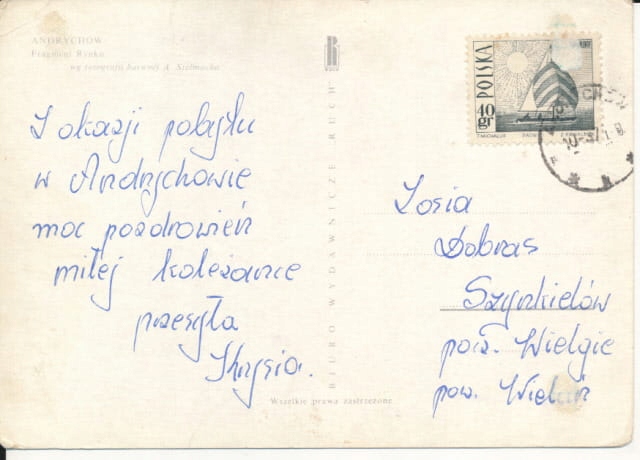 ANDRYCHÓW
Fragment Rynku
wg fotografii barwnej A. Stelmacha
Z okazji pobytu
w Andrychowie
moc pozdrowień
miłej koleżance
przesyła
Krysia.
BIURO WYDAWNICZE RUCH
Wszelkie prawa zastrzeżone
POLSKA
40 gr
T.MICHALUK
Zosia
Dobras
Szynkielów
pocz. Wielgie
pow. Wieluń